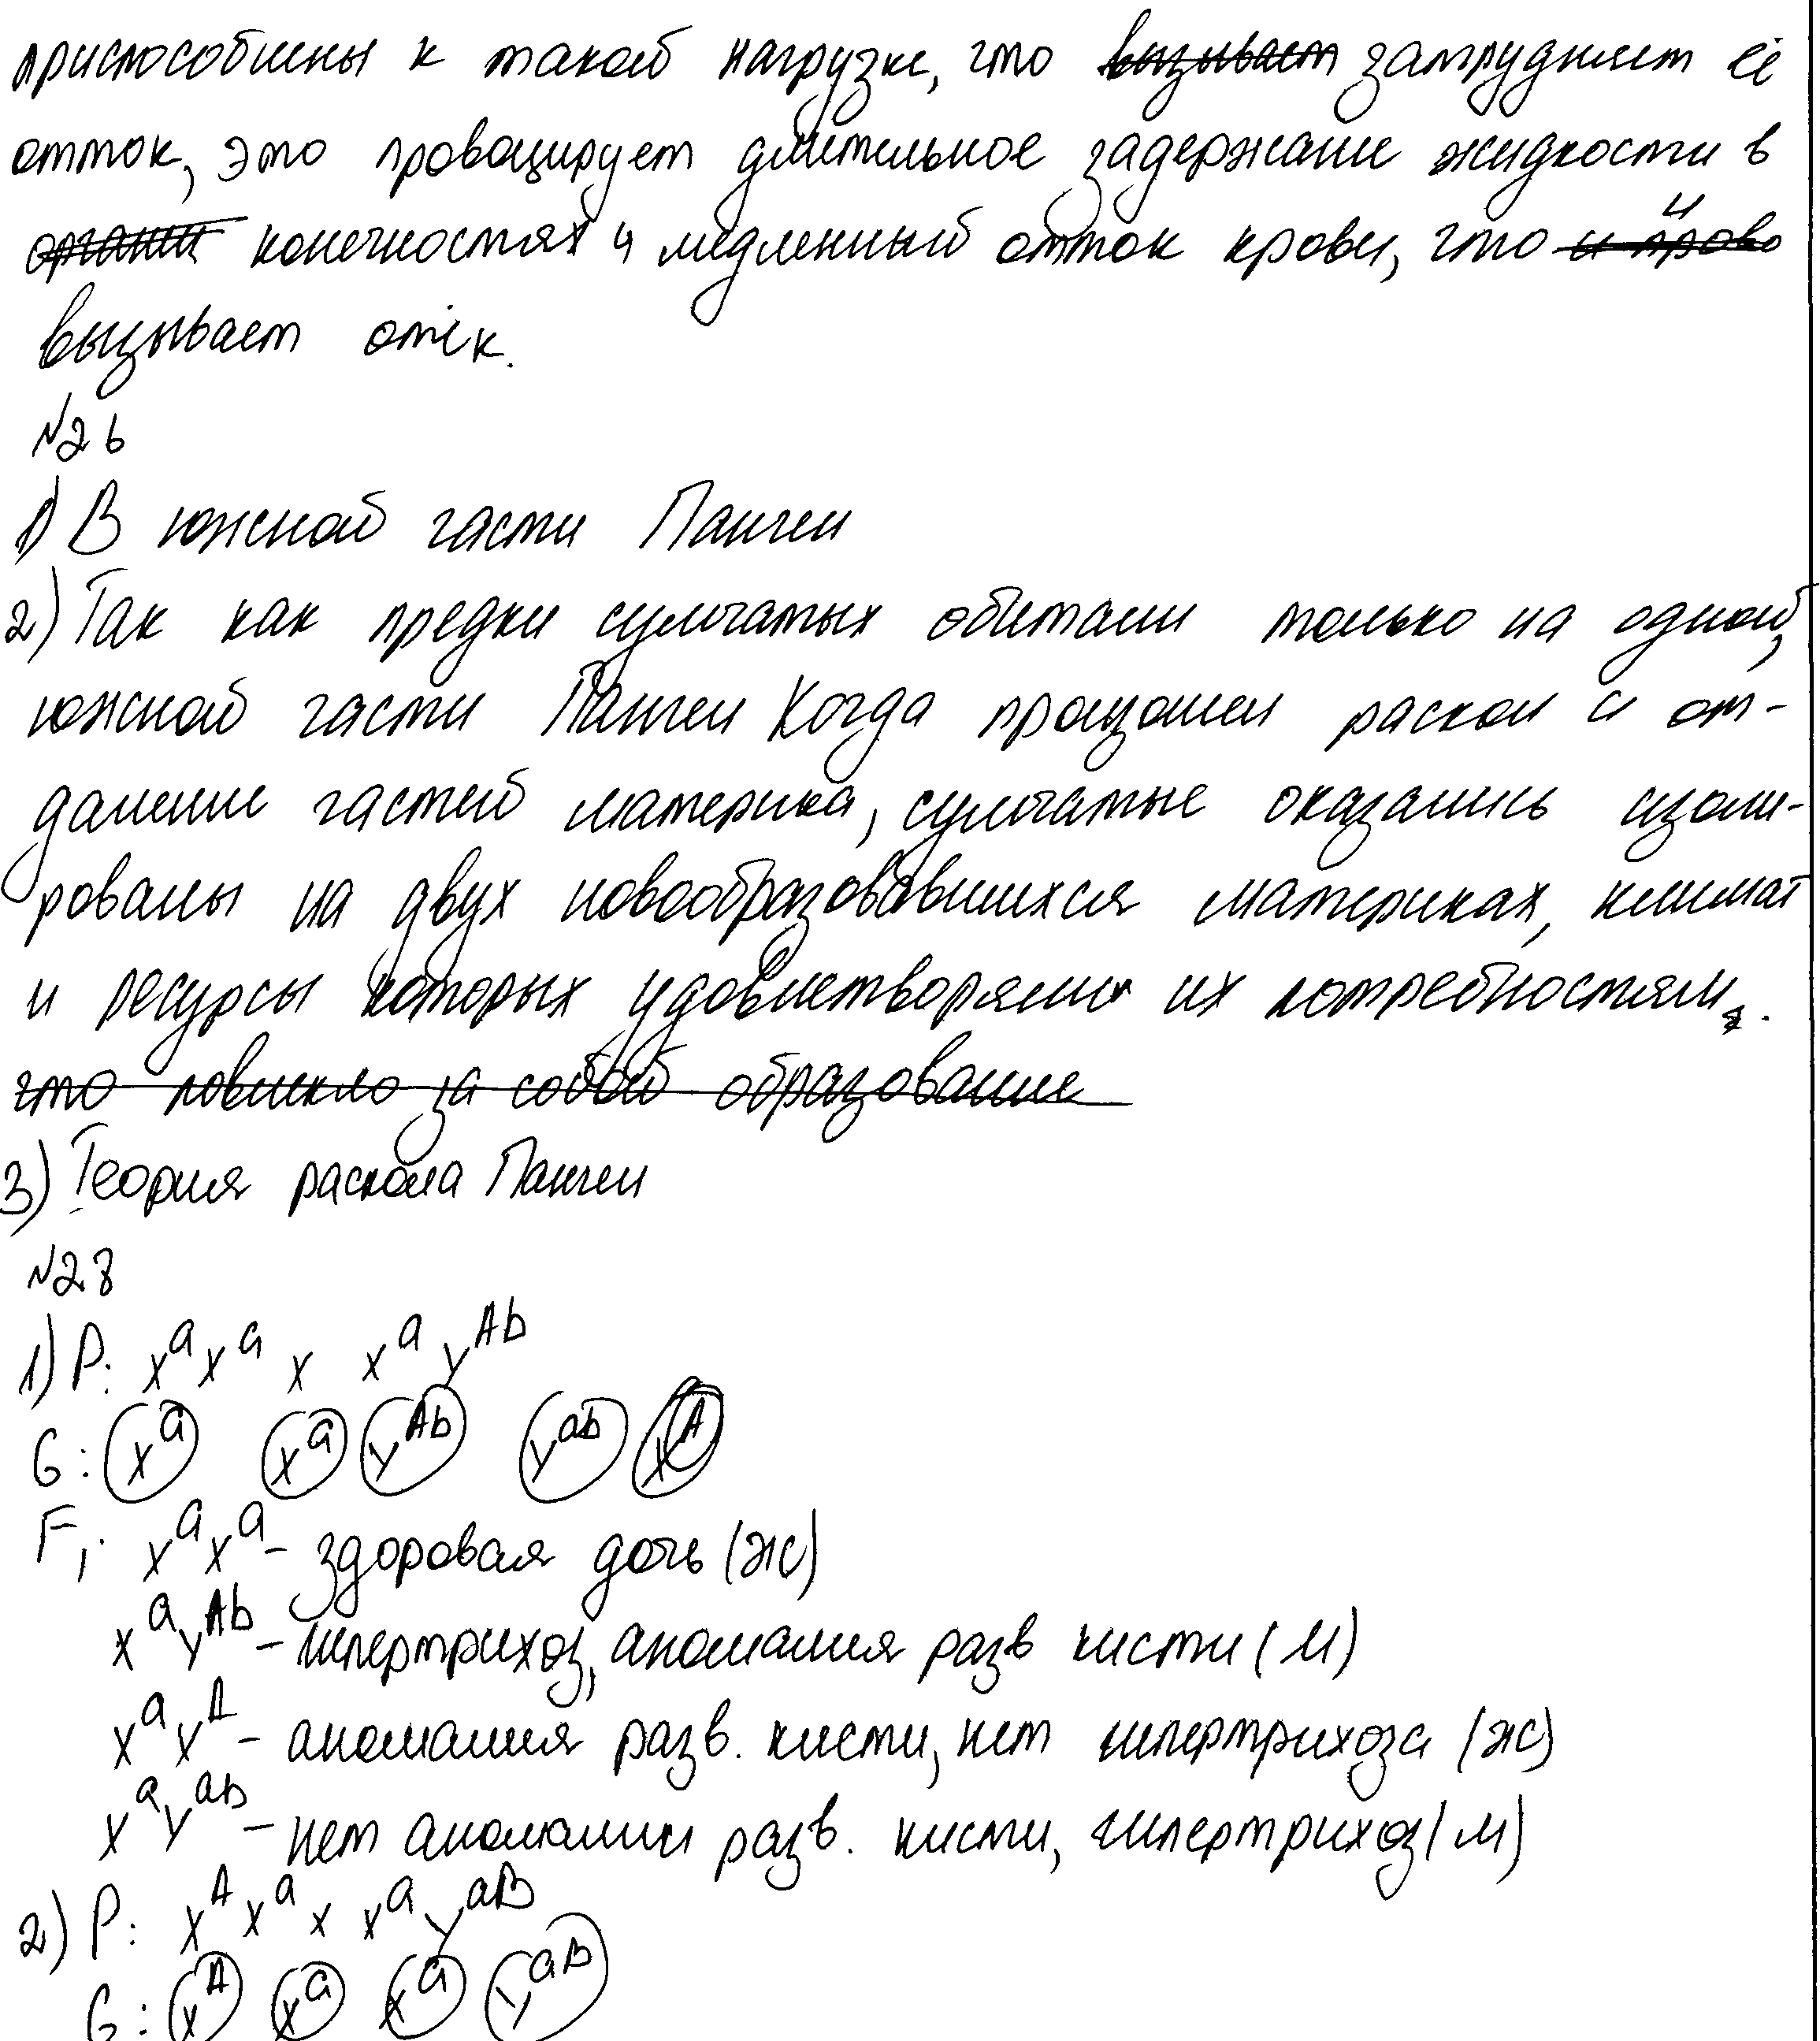 приспособлены к такой нагрузке, что вызывает затрудняет её
отток, это провоцирует длительное задержание жидкости в
органи конечностях и медленный отток крови, что и прово и
вызывает отёк.
№26
1) В южной части Пангеи
2) Так как предки сумчатых обитали только на одной,
южной части Пангеи Когда произошел раскол и от-
даление частей материка, сумчатые оказались изоли-
рованы на двух новообразовавшихся материках, климат
и ресурсы которых удовлетворяли их потребностям.
что повлекло за собой образование
3) Теория раскола Пангеи
№28
1) P: xᵃxᵃ x xᵃ yᴬᵇ
G: xᵃ xᵃ yᴬᵇ yᵃᵇ xᴬ
F₁: xᵃxᵃ - здоровая дочь (ж)
xᵃyᴬᵇ - гипертрихоз, аномалия разв кисти (м)
xᵃxᴬ - аномалия разв. кисти, нет гипертрихоза (ж)
xᵃyᵃᵇ - нет аномалии разв. кисти, гипертрихоз (м)
2) P: xᴬxᵃ x xᵃyᵃᴮ
G: xᴬ xᵃ xᵃ yᵃᴮ